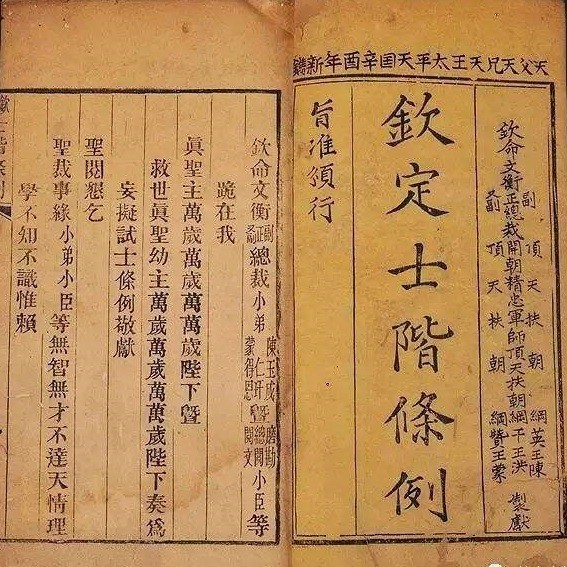 天父天兄天王太平天囯辛酉年新鐫
副 頂天扶朝綱英王陳
欽命文衡正總裁開朝精忠軍師頂天扶朝綱干王洪 製獻
又副 頂天扶朝綱贊王蒙
欽定士階條例
旨准頒行
欽命文衡副正又副總裁小弟陳玉成仁玕蒙得恩曁磨勘總閱閱文小臣等
跪在我
眞聖主萬歲萬歲萬萬歲陛下曁
救世眞聖幼主萬歲萬歲萬萬歲陛下奏爲
妄擬試士條例敬獻
聖閱懇乞
聖裁事緣小弟小臣等無智無才不達天情理
學不知不識惟賴